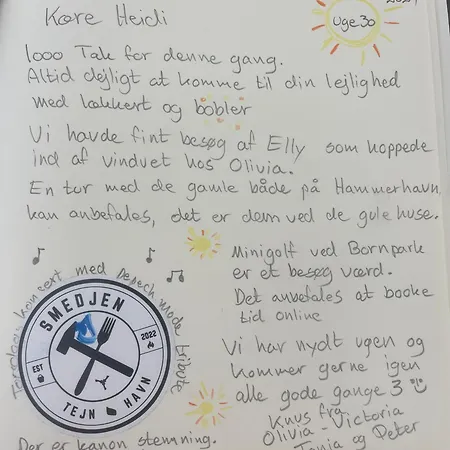 Kære Heidi
Uge 30
1000 Tak for denne gang.
Altid dejligt at komme til din lejlighed
med lækkert og bobler
Vi havde fint besøg af Elly som hoppede
ind af vinduet hos Olivia.
En tur med de gamle både på Hammerhavn
kan anbefales, det er dem ved de gule huse.
Minigolf ved Bornpark
er et besøg værd.
Det anbefales at booke
tid online
koncert med Depech Mode tribute
SMEDJEN
EST
2022
TEJN HAVN
Vi har nydt ugen og
kommer gerne igen
alle gode gange 3
Knus fra
Olivia - Victoria
Tonja og Peter
Der er kanon stemning.